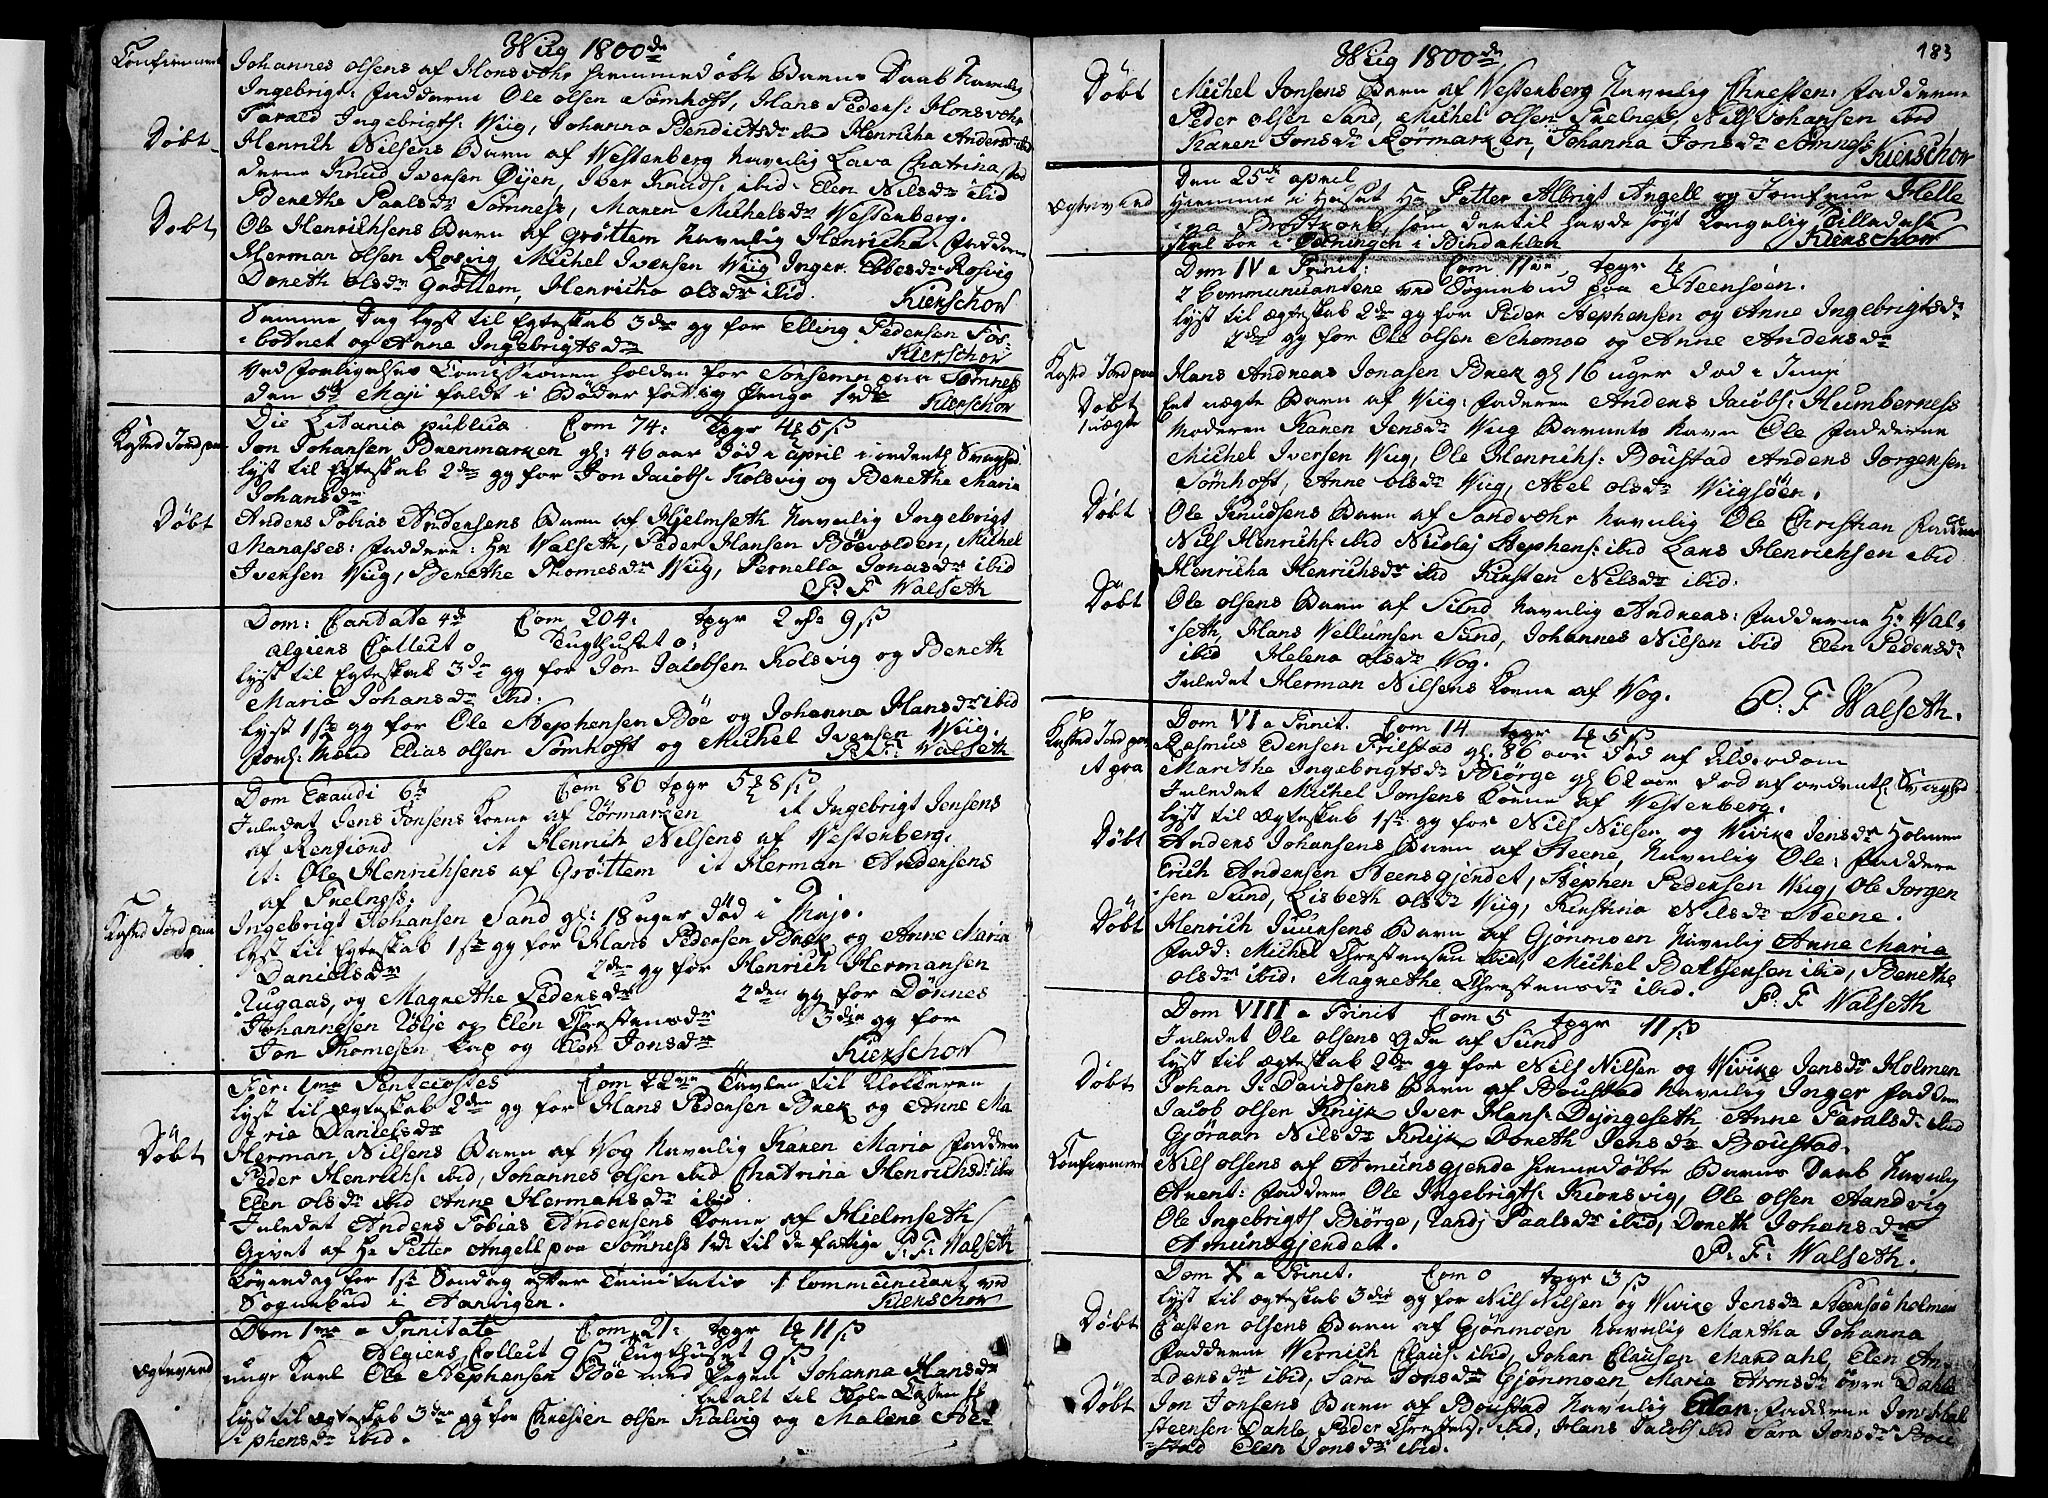 Wiig 1800de
Confirmeret
Johannes Olsens af Honsvohr hiemmedøbt Barns Daab Navnlig
Ingebrigt: Fadderne Ole Olsen Sømhoft, Hans Peders: Honsvohr
Tarald Ingebrigts: Wiig, Johanna Bendictsdr ibid Henricha Andersdr ibid
Døbt
Henrich Nilsens Barn af Westenberg Navnlig Lava Chatrina Fad
derne Knud Iversen Øyen, Iver Knuds: ibid. Elen Nilsdr ibid
Benethe Paalsdr Sømness, Maren Michelsdr Westenberg.
Døbt
Ole Henrichsens Barn af Grøttem Navnlig Henricha. Fadderne
Herman Olsen Rosvig Michel Iversen Wiig Inger Ebbesdr Rosvig
Doreth Olsdr Grøttem, Henricha Olsdr ibid.
Kierschow
Samme Dag lyst til Egteskab 3die gg for Elling Pedersen Fos-
botnet og Anne Ingebrigtsdr
Kierschow
Ved Forligelses Comissionen holden for Sonsemn paa Sømness
den 5te Maji faldt i Bøder fattig Penge 1rdr
Kierschow
Die Litania publica Com 74: Tpgr 4 5 ß
Kasted Jord paa
Jon Johansen Buenmarken gl: 46 aar død i April i ordentl Svaghed
lyst til Egteskab 2den gg for Jon Jacobs: Kolsvig og Benethe Maria
Johansdr
Døbt
Anders Tobias Andersens Barn af Hjelmseth Navnlig Ingebrigt
Manasses: Faddere: Hr Walseth, Peder Hansen Bøevolden, Michel
Iversen Wiig, Benethe Thomesdr Wiig, Pernella Jonasdr ibid
P: F Walseth
Dom: Cantate 4de Com 204: tpgr 2 9 ß
algiens Collect 0 Tugthuset 0:
lyst til Egteskab 3die gg for Jon Jacobsen Kolsvig og Beneth
Maria Johansdr ibid:
lyst 1ste gg for Ole Stephensen Bøe og Johanna Hansdr ibid
Forl: Mænd Elias Olsen Sømhofft og Michel Iversen Wiig.
P: F: Walseth
Dom Exaudi 6te Com 86 tpgr 5 8 ß
Inledet Jens Jonsens Kone af Rörmarken it Ingebrigt Jensens
af Renfiord it Henrich Nilsens af Westenberg.
it: Ole Henrichsens af Grøttem it Herman Andersens
af Trelness.
Kasted Jord paa
Ingebrigt Johansen Sand gl: 18 uger død i Majo.
lyst til Egteskab 1ste gg for Hans Pedersen Bræk og Anne Maria
Danielsdr 2den gg for Henrich Hermansen
Rugaas, og Magnethe Pedersdr 2den gg for Dønnes
Johannesen Rölje og Elen Christensdr 3die gg for
Jon Thomesen Kap og Elen Jonsdr
Kierschow
Fer: 1ma Pentecostes Com 22 Tavlen til Klokkeren
lyst til Egteskab 2den gg for Hans Pedersen Bræk og Anne Ma
ria Danielsdr
Døbt
Herman Nilsens Barn af Vog Navnlig Karen Maria Faddere
Peder Henrichs: ibid, Johannes Olsen ibid Chatrina Henrichsdr ibid
Elen Olsdr ibid Anne Hermansdr ibid
Inledet Anders Tobias Andersens Kone af Hielmseth
Givet af Hr Petter Angell paa Sømness 1rdr til de fattige P: F: Walseth
Løverdag før 1ste Søndag efter Trinitatis 1 Communicant ved
Sognebud i Aarvigen.
Kierschow
Dom 1ma a Trinitate Com 21: tpgr 1 11 ß
Algiens Collect 9 ß Tugthuset 9 ß
Egteviet
unge Karl Ole Stephensen Bøe med Pigen Johanna Hansdr
betalt til Skole Casten
lyst til Egteskab 3die gg for Christen Olsen Kalvig og Malene Ste-
phensdr ibid.
183
Wiig 1800de
Døbt
Michel Jonsens Barn af Westenberg Navnlig Chresten: Fadderne
Peder Olsen Sand, Michel Olsen Trelness, Nils Johansen ibid
Karen Jonsdr Rörmarken, Johanna Jonsdr Sömness
Kierschow
Den 25de April
Egteviet
hiemme i Huset Hr Petter Albrigt Angell og Jomfrue Helle
na Brodtkorb, som dertil havde søgt Kongelig Tilladelse
skal boe i Terningen i Bindahlen
Kierschow
Dom IV a Trinit: Com 11 tpgr
2 Communicantene ved Sognebud paa Steensøen.
lyst til Egteskab 2den gg for Peder Stephensen og Anne Ingebrigtsdr
2den gg for Ole Olsen Schomoe og Anne Andersdr
Kasted Jord paa
Hans Andreas Jonasen Bræk gl 16 uger død i Junij
Døbt
1 uægte
Eet uægte Barn af Wiig: Faderen Anders Jacobs: Humberness
Moderen Karen Jensdr Wiig Barnets Navn Ole Fadderne
Michel Iversen Wiig, Ole Henrichs: Boustad Anders Jørgensen
Sømhoft, Anne Olsdr Wiig, Abel Olsdr Wiigsøen.
Døbt
Ole Knudsens Barn af Sandvæhr Navnlig Ole Christian Fadderne
Nils Henrichs: ibid Nicolaj Stephens: ibid Lars Henrichsen ibid
Henricha Henrichsdr ibid Kirsten Nilsdr ibid.
Døbt
Ole Olsens Barn af Sund Navnlig Andreas: Fadderne Hr Wal-
seth, Hans Vellumsen Sund, Johannes Nilsen ibid Elen Pedersdr
ibid Helena Olsdr Vog.
Inledet Herman Nilsens Kone af Vog.
P: F Walseth.
Dom VI a Trinit. Com 14 tpgr 1 5 ß
Kasted Jord paa
Rasmus Edensen Frilstad gl. 86 aar død af Alderdom
it paa
Marithe Ingebrigtsdr Biørge gl 62 aar død af ordentl: Svaghed
Inledet Michel Jonsens Kone af Westenberg.
lyst til Egteskab 1ste gg for Nils Nilsen og Wivike Jensdr Holmen
Døbt
Anders Johansens Barn af Steene, Navnlig Ole: Faddere
Erich Andersen Steensgjendet, Stephen Pedersen Wiig, Ole Jorgen
sen Sund, Lisbeth Olsdr Wiig, Kirstina Nilsdr Steene.
Døbt
Henrich Juursens Barn af Gjönmoen Navnlig Anne Maria
Fadd: Michel Chrestensen ibid, Michel Baltzersen ibid, Benethe
Olsdr ibid: Magnethe Chrestensdr ibid.
P: F Walseth
Dom VIII a Trinit Com 5 tpgr 11 ß
Inledet Ole Olsens Qde af Sund
lyst til Egteskab 2den gg for Nils Nilsen og Wivike Jensdr Holmen
Døbt
Johan J: Davidsens Barn af Boustad Navnlig Inger Fadderne
Jacob Olsen Knijk Iver Hans: Dyngeseth Anne Taralsdr ibid
Gjøraan Nilsdr Knijk Doreth Jensdr Boustad.
Confirmeret
Nils Olsens af Amunsgjende hiemmedøbte Barns Daab Navnlig
Arent: Faddere Ole Ingebrigts: Kionsvig, Ole Olsen Aandvig
Ole Ingebrigts Biörge, Randj Paalsdr ibid, Doreth Johansdr
Amunsgjendet.
P: F: Walseth.
Dom X a Trinit. Com 0 tpgr 3 ß
lyst til Egteskab 3die gg for Nils Nilsen og Wivike Jensdr Steensøeholmen
Døbt
Casten Olsens Barn af Gjönmoen Navnlig Martha Johanna
Fadderne Wernich Claus: ibid, Johan Clausen Mardahl, Elen An-
dersdr ibid, Sara Jonsdr Gjønmoen Maria Aronsdr øvre Dahle
Døbt
Jon Jonsens Barn af Boustad Navnlig Elen. Fadderne Jon Hal
steensen Dahle, Peder Chrestens: ibid, Hans Jacobs ibid Sara Jonsdr Bou
stad Elen Jonsdr ibid.